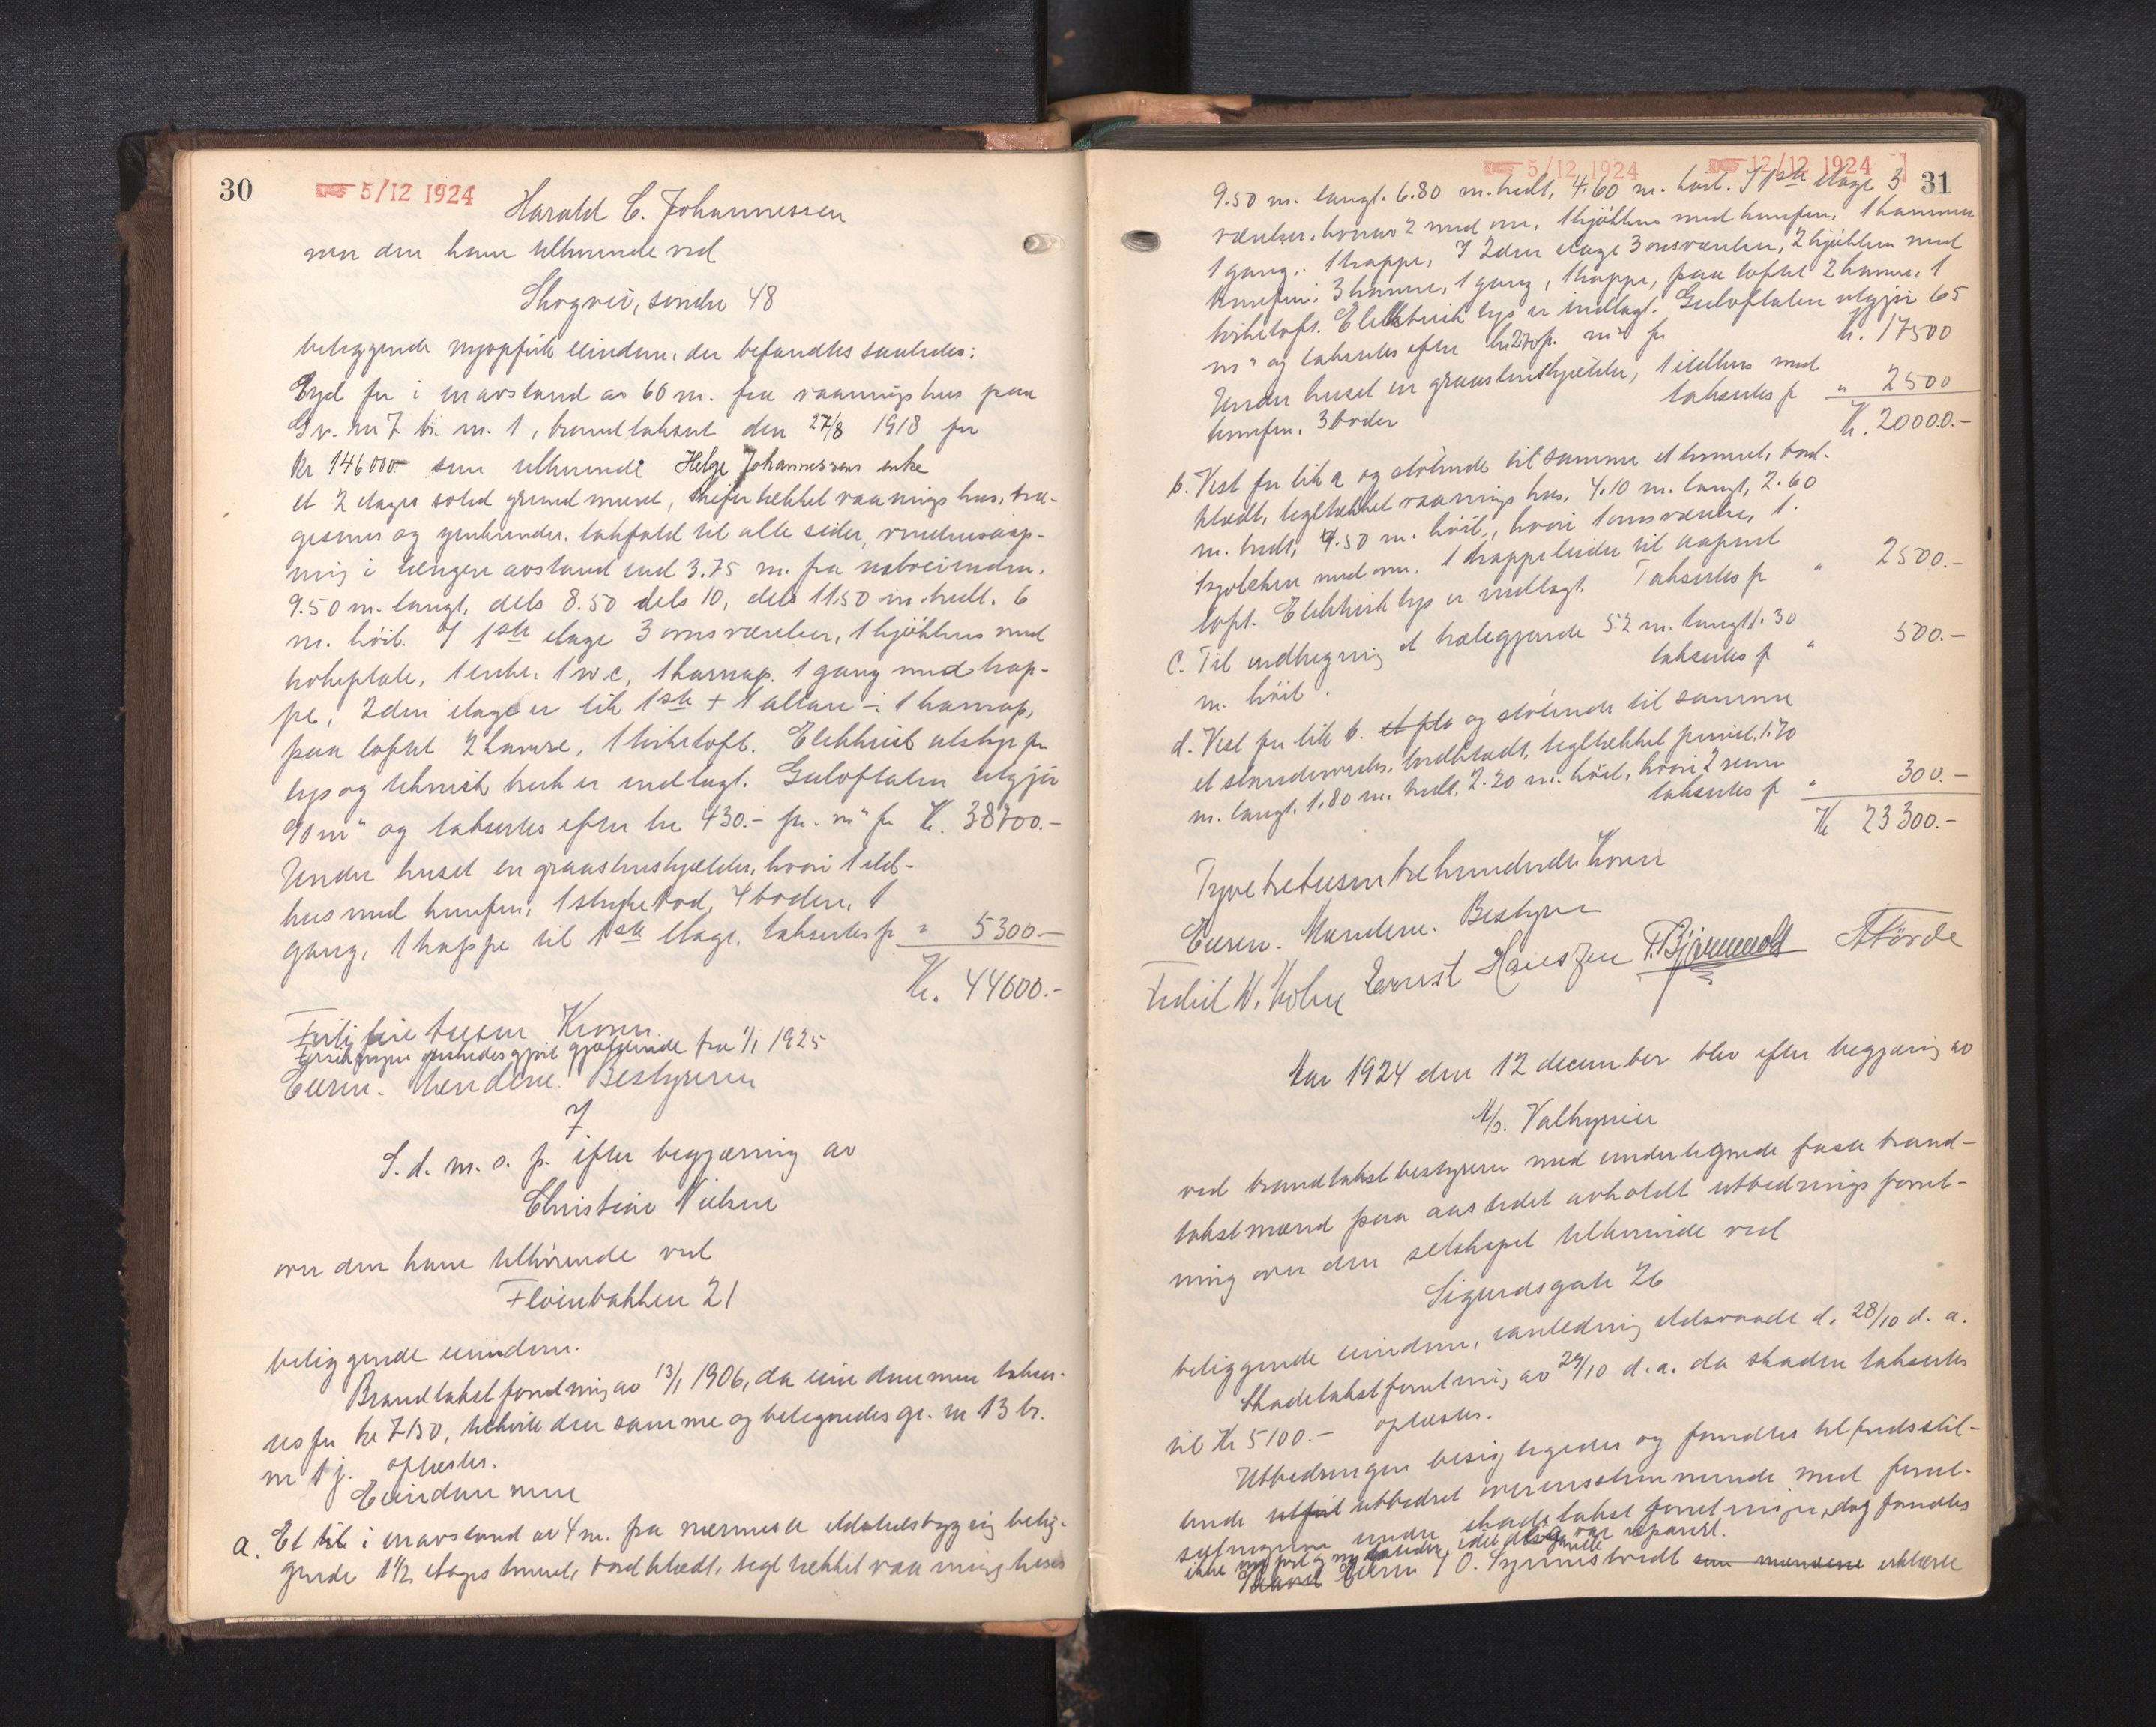 30
5/12 1924
Harald C. Johannessen
over den ham tilhørende ved
Skogvei, søndre 48
beliggende nyopførte eiendom, der befandtes saaledes:
Syd for i en avstand av 60 m. fra vaaningshus paa
Gr. nr 7 br. nr. 1, brandtaksert den 27/8 1918 for
kr 146000.- som tilhørende Helge Johannessens enke
et 2 etages solid grundmuret, skifertækket vaaningshus, tra-
gesimser og tagfald til alle sider, vinduesaap-
ning i længere avstand end 3.75 m. fra naboeiendom.
9.50 m. langt, dels 8.50 dels 10, dels 11.50 m. bredt. 6
m. höit. I 1ste etage 3 ovnsværelser, 1 kjökken med
kokeplate, 1 entre, 1 w c, 1 karnap. 1 gang med trap-
pe, 2den etage er lik 1ste + 1 altan ÷ 1 karnap,
paa loftet 2 kamre, 1 tørkeloft. Elektrisk utstyr for
lys og teknisk bruk er indlagt. Gulvflaten utgjør
90 m² og takseres efter kr 430.- pr. m² for Kr. 38700.-
Under huset en graastenskjælder, hvori 1 ild-
hus med komfur, 1 strykebod, 4 boder, 1
gang, 1 trappe til 1ste etage. takseres for " 5300.-
Kr. 44000.-
Firti fire tusen Kroner.
Forsikringen ønskedes gjort gjældende fra 1/1 1925
Eieren. Mændene. Bestyreren
7
S. d. m. o. p. efter begjæring av
Christian Nielsen
over den ham tilhørende ved
Fløienbakken 21
beliggende eiendom.
Brandtakstforretning av 13/1 1906, da eiendommen takser-
tes for kr 7150, tilhørte den samme og betegnedes gr. nr 13 br.
nr 1 j. oplæstes.
Eiendommen
a. Et til i en avstand av 4 m. fra nærmeste ildstedsbygning belig-
gende 1½ etages tømret, bordklædt, tegltækket vaaningshus
5/12 1924 12/12 1924 31
9.50 m. langt. 6.80 m. bredt, 4.60 m. høit. I 1ste etage 3
værelser, hvorav 2 med ovn, 1 kjökken med komfur, 1 kammer
1 gang, 1 trappe, I 2den etage 3 ovnsværelser, 2 kjøkken med
komfur, 3 kamre, 1 gang, 1 trappe, paa loftet 2 kamre, 1
tørkeloft. Elektrisk lys er indlagt. Gulvflaten utgjør 65
m² og takseres efter kr 270 p. m² for kr. 17500
Under huset en graastenskjælder, 1 ildhus med
komfur, 3 boder takseres for " 2500
Kr. 20000.-
b. Vest for litr a og støtende til samme et tømret, bord-
klædt, tegltækket vaaningshus, 4.10 m. langt, 2.60
m. bredt, 4.50 m. höit, hvori 1 ovnsværelse, 1
kjøkken med ovn. 1 trappeleider til aapent
loft. Elektrisk lys er indlagt. Takseres for " 2500.-
c. Til indhegning et trælegjærde 52 m. langt 1.30
m. höit. takseres for " 500.-
d. Vest for litr b. og støtende til samme
et stenderverks, bordklædt, tegltækket privet, 1.70
m. langt. 1.80 m. bredt, 2.20 m. höit, hvori 2 rum
takseres for " 300.-
Kr 23300.-
Tyvetretusen trehundrede Kroner
Eieren. Mændene. Bestyreren
Fredrik W. Holm Ernst Hanszen T. Bjørnevold A Førde
Aar 1924 den 12 december blev efter begjæring av
A/s. Valkyrien
ved brandtakstbestyreren med undertegnede faste brand-
takstmænd paa aastedet avholdt utbedringsforret-
ning over den selskapet tilhørende ved
Sigurdsgate 26
beliggende eiendom, i anledning ildsvaade d. 28/10 d. a.
Skadetakstforretning av 29/10 d. a. da skaden takseres
til Kr 5100.- oplæstes.
Utbedringen besigtigedes og fandtes tilfredsstil-
lende utført utbedret overensstemmende med forut-
sætningerne under skadetakstforretningen, dog fandtes
ikke idet var repareret.
Eieren / O. Synnestvedt som mændene erklærte